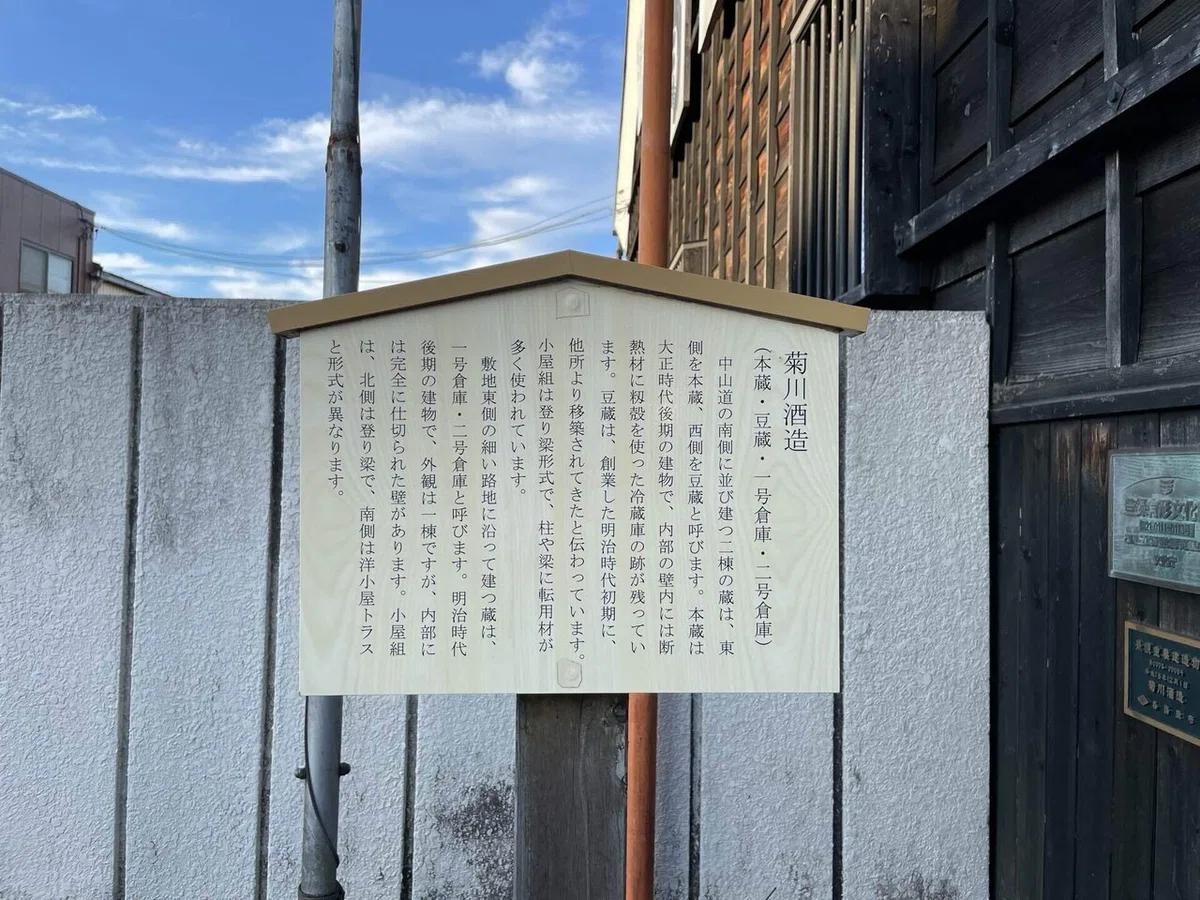 菊川酒造
(本蔵・豆蔵・一号倉庫・二号倉庫)
中山道の南側に並び建つ二棟の蔵は、東
側を本蔵、西側を豆蔵と呼びます。本蔵は
大正時代後期の建物で、内部の壁内には断
熱材に籾殻を使った冷蔵庫の跡が残ってい
ます。豆蔵は、創業した明治時代初期に、
他所より移築されてきたと伝わっています。
小屋組は登り梁形式で、柱や梁に転用材が
多く使われています。
敷地東側の細い路地に沿って建つ蔵は、
一号倉庫・二号倉庫と呼びます。明治時代
後期の建物で、外観は一棟ですが、内部に
は完全に仕切られた壁があります。小屋組
は、北側は登り梁で、南側は洋小屋トラス
と形式が異なります。
景観重要建造物
菊川酒造